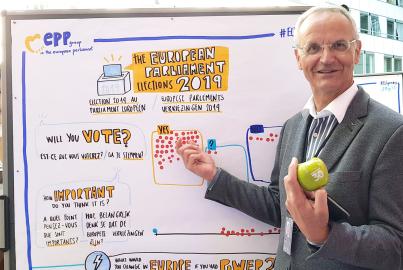 epp group
in the european parliament
#E
THE EUROPEAN
PARLIAMENT
ELECTIONS 2019
ELECTION 2019 AU
PARLIAMENT EUROPÉEN
EUROPESE PARLEMENTS
VERKIEZINGEN 2019
WILL YOU VOTE?
EST-CE QUE VOUS VOTEREZ? / GA JE STEMMEN?
YES
?
HOW IMPORTANT
DO YOU THINK IT IS?
À QUEL POINT
PENSEZ-VOUS
QUE SONT
IMPORTANTES?
HOE BELANGRIJK
DENK JE DAT DE
EUROPESE VERKIEZINGEN
ZIJN?
WHAT WOULD
YOU CHANGE IN EUROPE IF YOU HAD POWER?